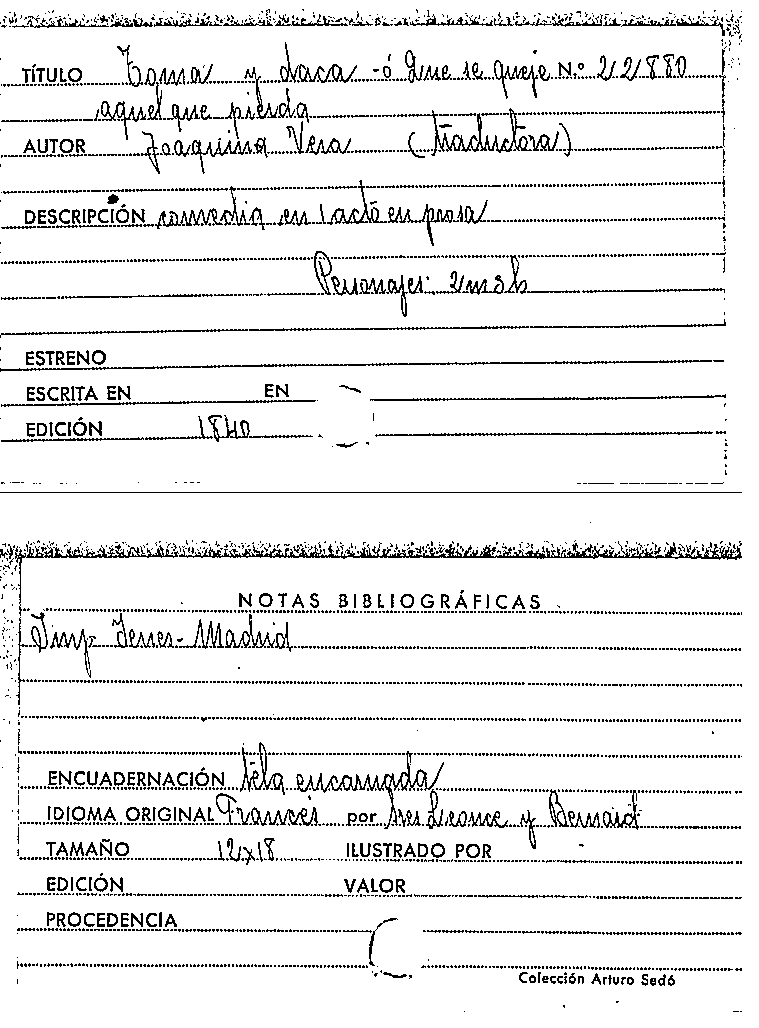 TÍTULO Toma y daca - ó Que se queje N.º 212880
aquel que pierda
AUTOR Joaquina Vera (traductora)
DESCRIPCIÓN comedia en 1 acto en prosa
Personajes: 2m3h
ESTRENO
ESCRITA EN EN
EDICIÓN 1840
NOTAS BIBLIOGRÁFICAS
Imp. Yenes - Madrid
ENCUADERNACIÓN tela encarnada
IDIOMA ORIGINAL Francés por Sres Leonce y Bernard
TAMAÑO 12x18 ILUSTRADO POR -
EDICIÓN VALOR
PROCEDENCIA
Colección Arturo Sedó